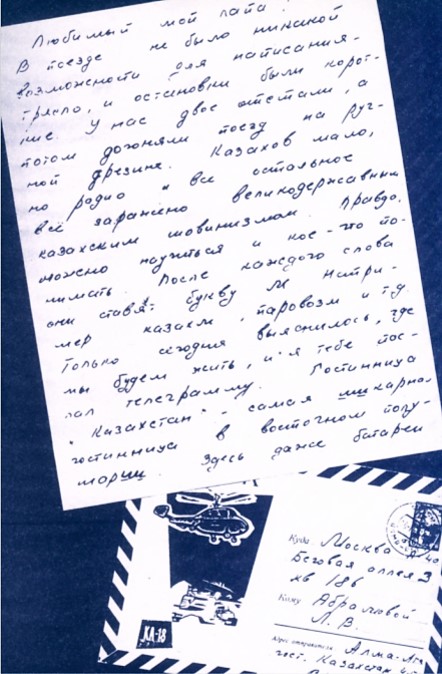 Любимый мой папа!
В поезде не было никакой
возможности для написания –
трясло, и остановки были корот-
кие. У нас двое отстали, а
потом догоняли поезд на руч-
ной дрезине. Казахов мало,
но радио и все остальное
всё заражено великодержавным
казахским шовинизмом. Правда,
можно научиться и кое-что по-
нимать. После каждого слова
они ставят букву М. Напри-
мер казахм, паровозм и т.д.
Только сегодня выяснилось, где
мы будем жить, и я тебе пос-
лал телеграмму. Гостинница
"Казахстан" – самая шикарная
гостинница в восточном полу-
шории. Здесь даже батареи
КА-18
Куда Москва А-40
Беговая аллея 3
кв 186
Кому Абрамовой
Л. В.
Адрес отправителя Алма-Ата
гост. Казахстан